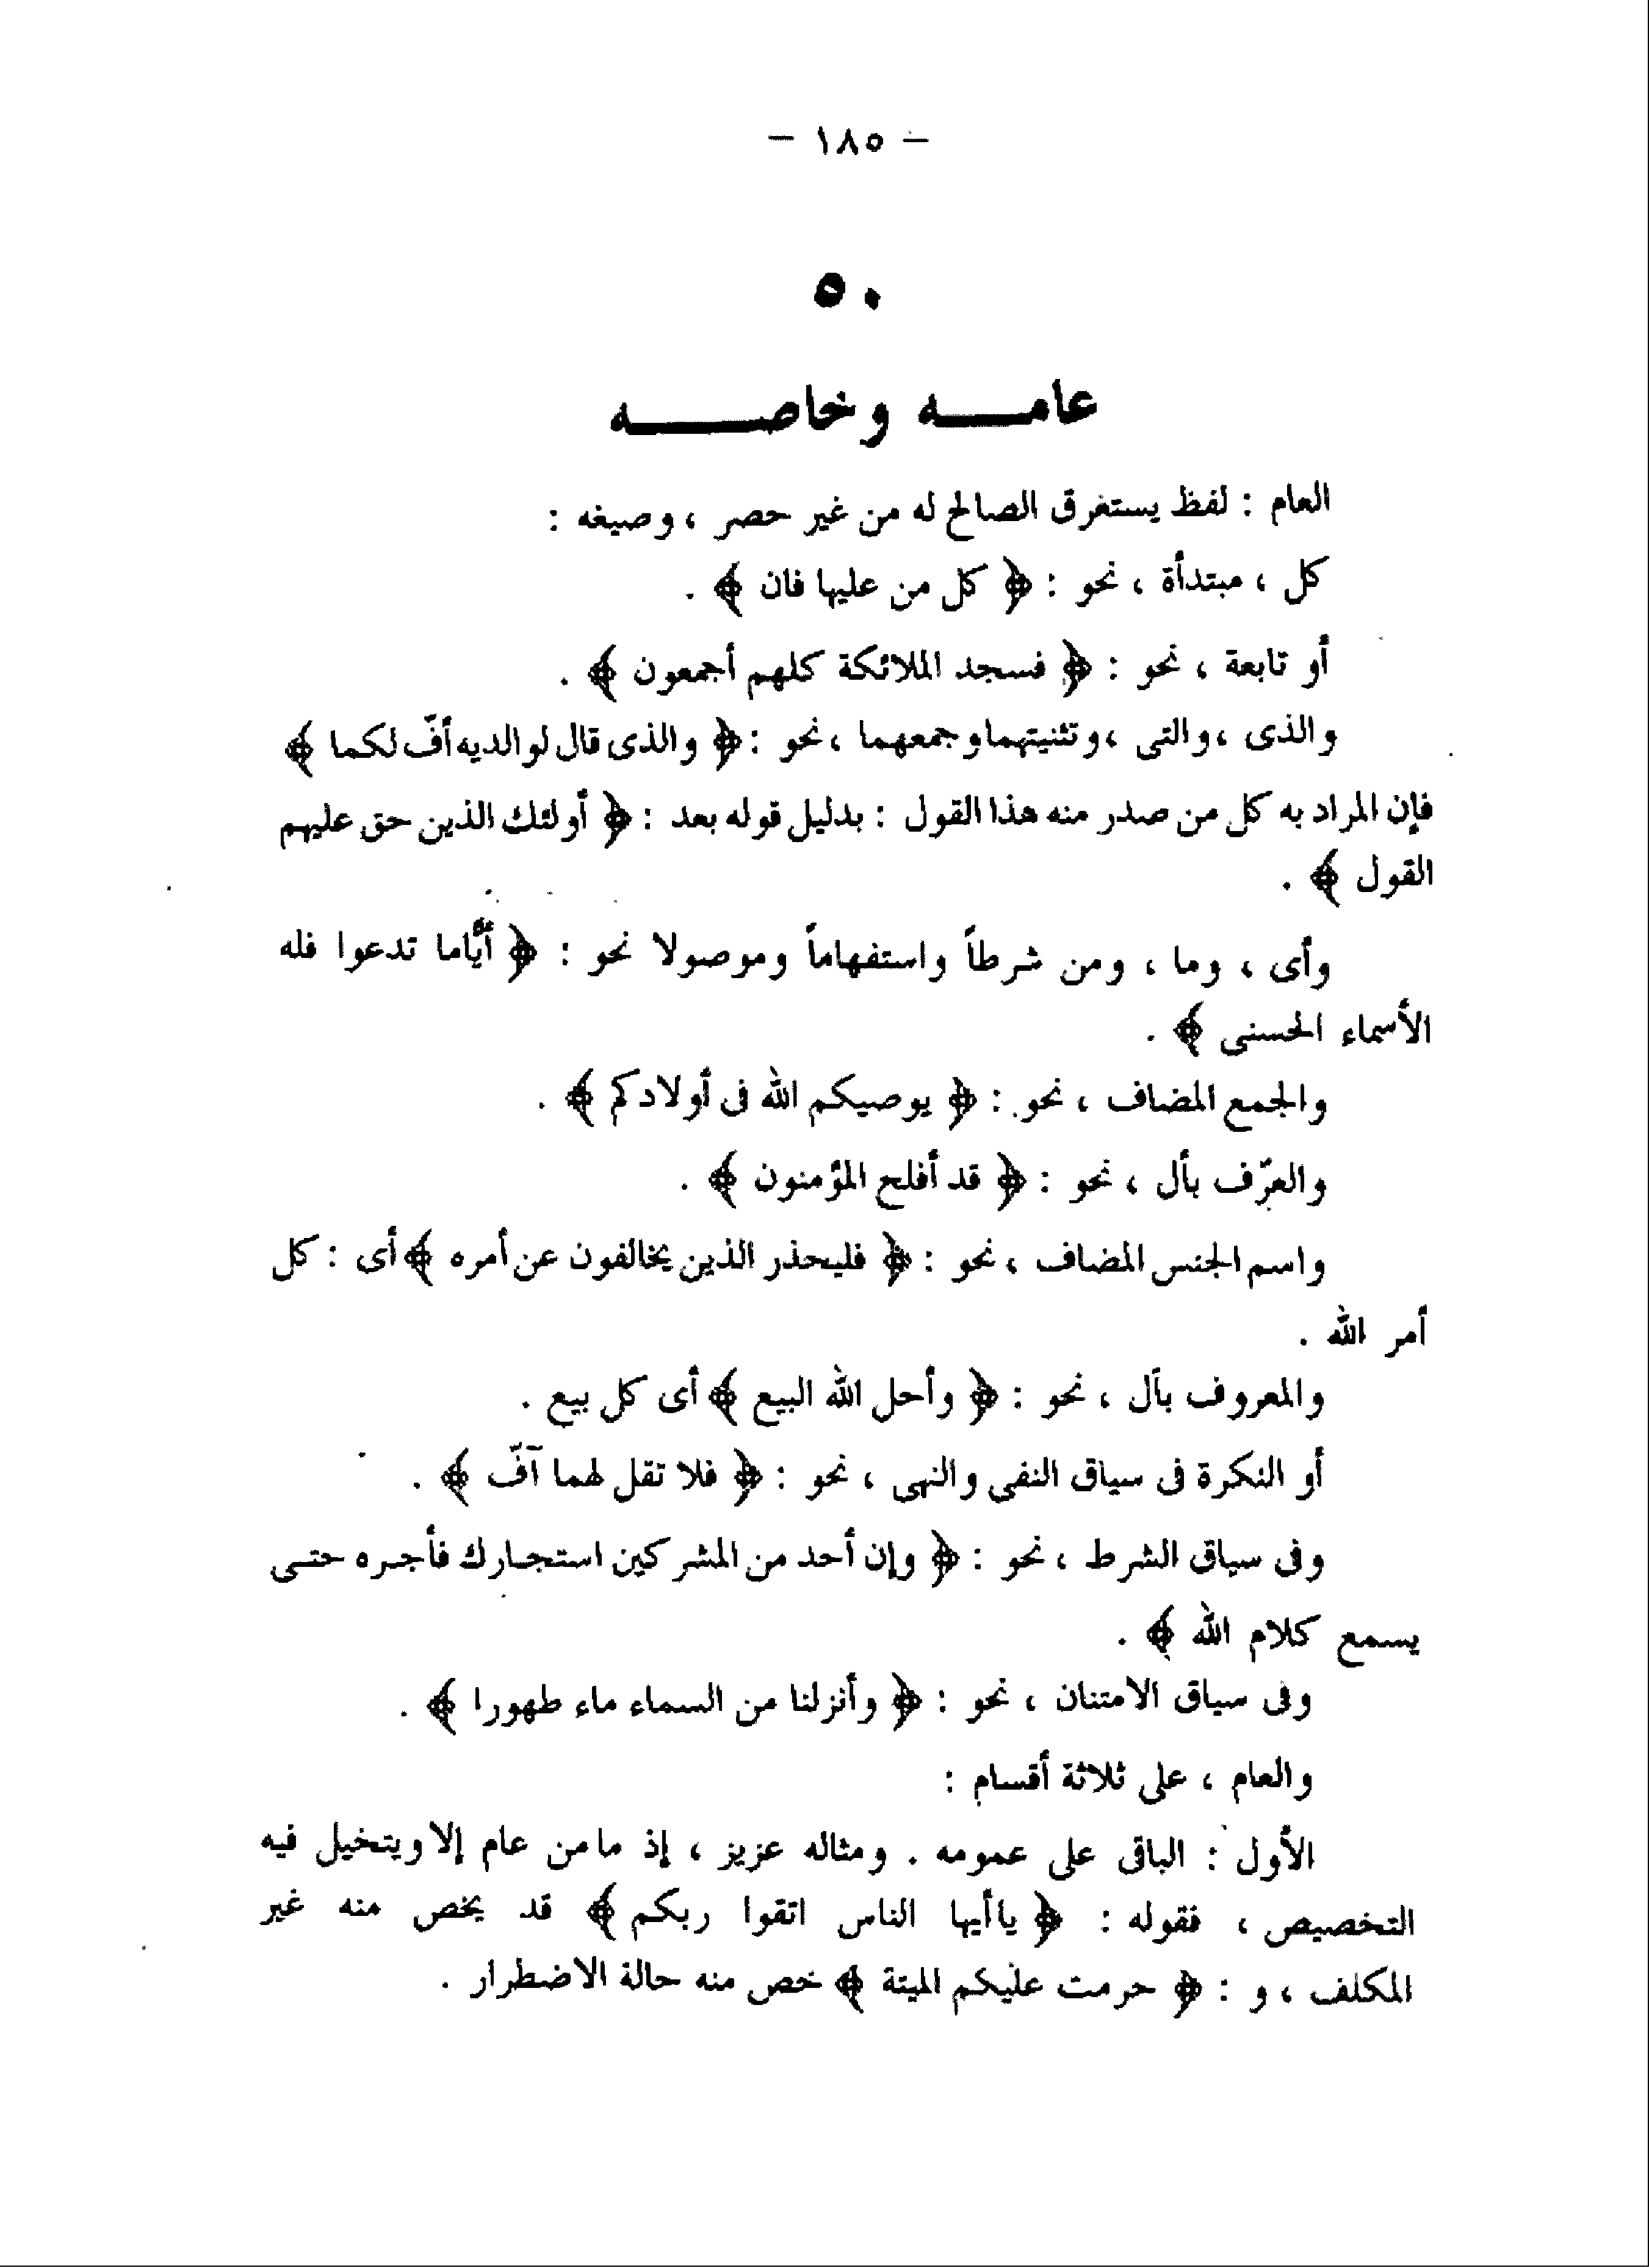 – ١٨٥ –
٥٠
عامـــه وخاصـــــه
العام : لفظ يستغرق الصالح له من غير حصر ، وصيغه :
كل ، مبتدأة ، نحو : ﴿ كل من عليها فان ﴾ .
أو تابعة ، نحو : ﴿ فسجد الملائكة كلهم أجمعون ﴾ .
والذى ، والتى ، وتثنيتهما وجمعهما ، نحو : ﴿ والذى قال لوالديه أفّ لكما ﴾
فإن المراد به كل من صدر منه هذا القول : بدليل قوله بعد : ﴿ أولئك الذين حق عليهم
القول ﴾ .
وأى ، وما ، ومن شرطاً واستفهاماً وموصولا نحو : ﴿ أيًّاما تدعوا فله
الأسماء الحسنى ﴾ .
والجمع المضاف ، نحو : ﴿ يوصيكم الله فى أولادكم ﴾ .
والعرّف بأل ، نحو : ﴿ قد أفلح المؤمنون ﴾ .
واسم الجنس المضاف ، نحو : ﴿ فليحذر الذين يخالفون عن أمره ﴾ أى : كل
أمر الله .
والمعروف بأل ، نحو : ﴿ وأحل الله البيع ﴾ أى كل بيع .
أو النكرة فى سياق النفى والنهى ، نحو : ﴿ فلا تقل لهما آفّ ﴾ .
وفى سياق الشرط ، نحو : ﴿ وإن أحد من المشركين استجـارك فأجـره حتـى
يسمع كلام الله ﴾ .
وفى سياق الامتنان ، نحو : ﴿ وأنزلنا من السماء ماء طهورا ﴾ .
والعام ، على ثلاثة أقسام :
الأول : الباقى على عمومه . ومثاله عزيز ، إذ ما من عام إلا ويتخيل فيه
التخصيص ، فقوله : ﴿ ياأيها الناس اتقوا ربكم ﴾ قد يخص منه غير
المكلف ، و : ﴿ حرمت عليكم الميتة ﴾ خص منه حالة الاضطرار .